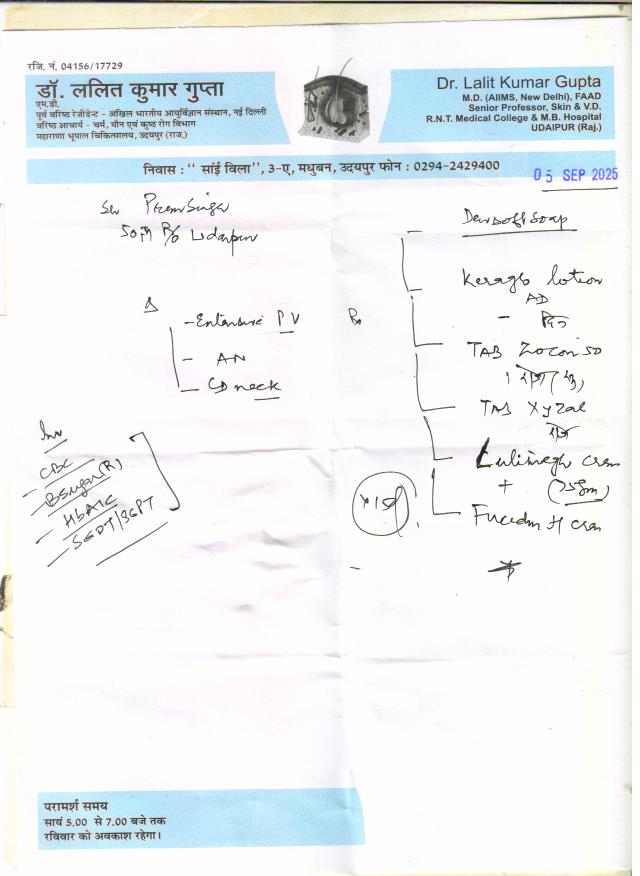 रजि. नं. 04156/17729
डॉ. ललित कुमार गुप्ता
एम.डी.
पूर्व वरिष्ठ रेजीडेन्ट - अखिल भारतीय आयुर्विज्ञान संस्थान, नई दिल्ली
वरिष्ठ आचार्य - चर्म, यौन एवं कुष्ठ रोग विभाग
महाराणा भूपाल चिकित्सालय, उदयपुर (राज.)
Dr. Lalit Kumar Gupta
M.D. (AIIMS, New Delhi), FAAD
Senior Professor, Skin & V.D.
R.N.T. Medical College & M.B. Hospital
UDAIPUR (Raj.)
निवास : '' सांई विला'', 3-ए, मधुबन, उदयपुर फोन : 0294-2429400
05 SEP 2025
Prem Singh
R/o Udaipur
Δ
- Extensive PV
- AN
- CD neck
Inv
- CBC
- BSugar (R)
- HbA1C
- SGOT/SGPT
Rx
soap
lotion
AD
TAB Zocon 50
TAB Xyzal
cream
+
Fucidin H cream
परामर्श समय
सायं 5.00 से 7.00 बजे तक
रविवार को अवकाश रहेगा।